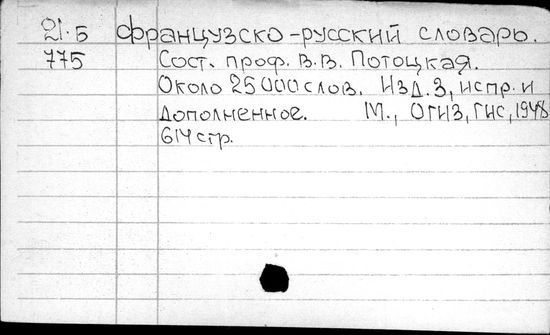 21.Б Французско-русский словарь.
775 Сост. проф. В.В. Потоцкая.
Около 25000 слов. Изд. 3, испр. и
дополненное. М., ОГИЗ, ГИС, 1948
614 стр.